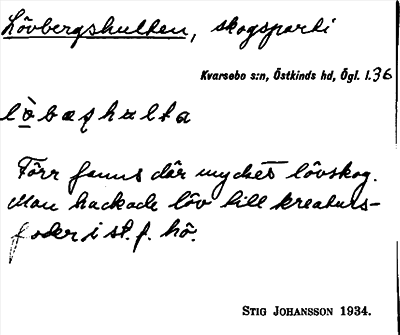 Lövbergshulten, skogsparti
Kvarsebo s:n, Östkinds hd, Ögl. 1.36
Förr fanns där mycket lövskog.
Man hackade löv till kreaturs-
foder i st. f. hö.
STIG JOHANSSON 1934.